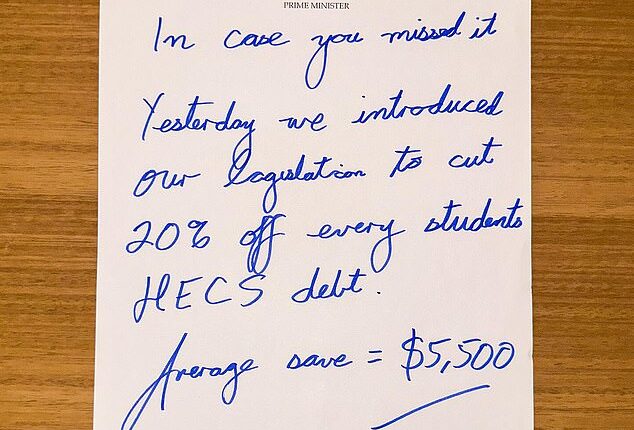 PRIME MINISTER
In case you missed it
Yesterday we introduced
our legislation to cut
20% off every students
HECS debt.
Average save = $5,500